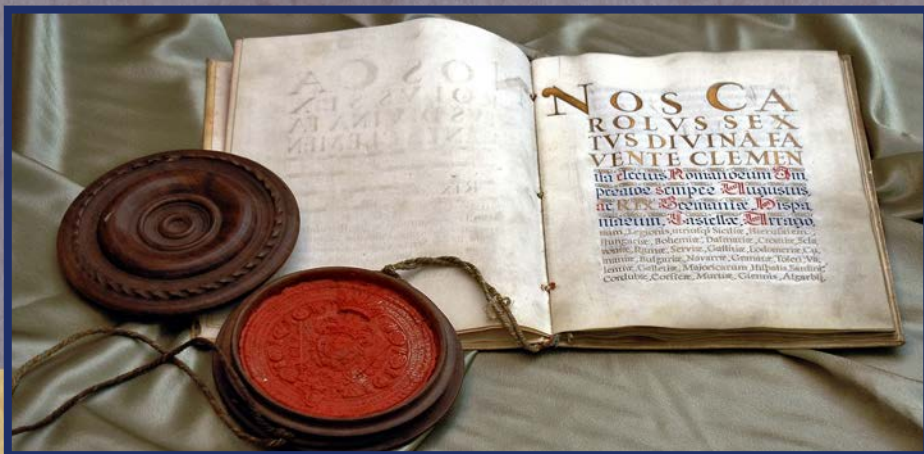 NOS CA
ROLVS SEX
TVS DIVINA FA
VENTE CLEMEN
tia electus Romanorum Im
perator semper Augustus,
ac REX Germaniæ Hispa
niarum, Castellæ, Arrago
niæ, Legionis, utriusq; Siciliæ, Hierusalem,
Hungariæ, Bohemiæ, Dalmatiæ, Croatiæ, Scla
voniæ, Ramæ, Serviæ, Galliciæ, Lodomeriæ, Cu
maniæ, Bulgariæ, Navarræ, Granatæ, Toleti, Va
lentiæ, Galletiæ, Majoricarum, Hispalis, Sardiniæ,
Cordubæ, Corsicæ, Murtiæ, Giennis, Algarbij,